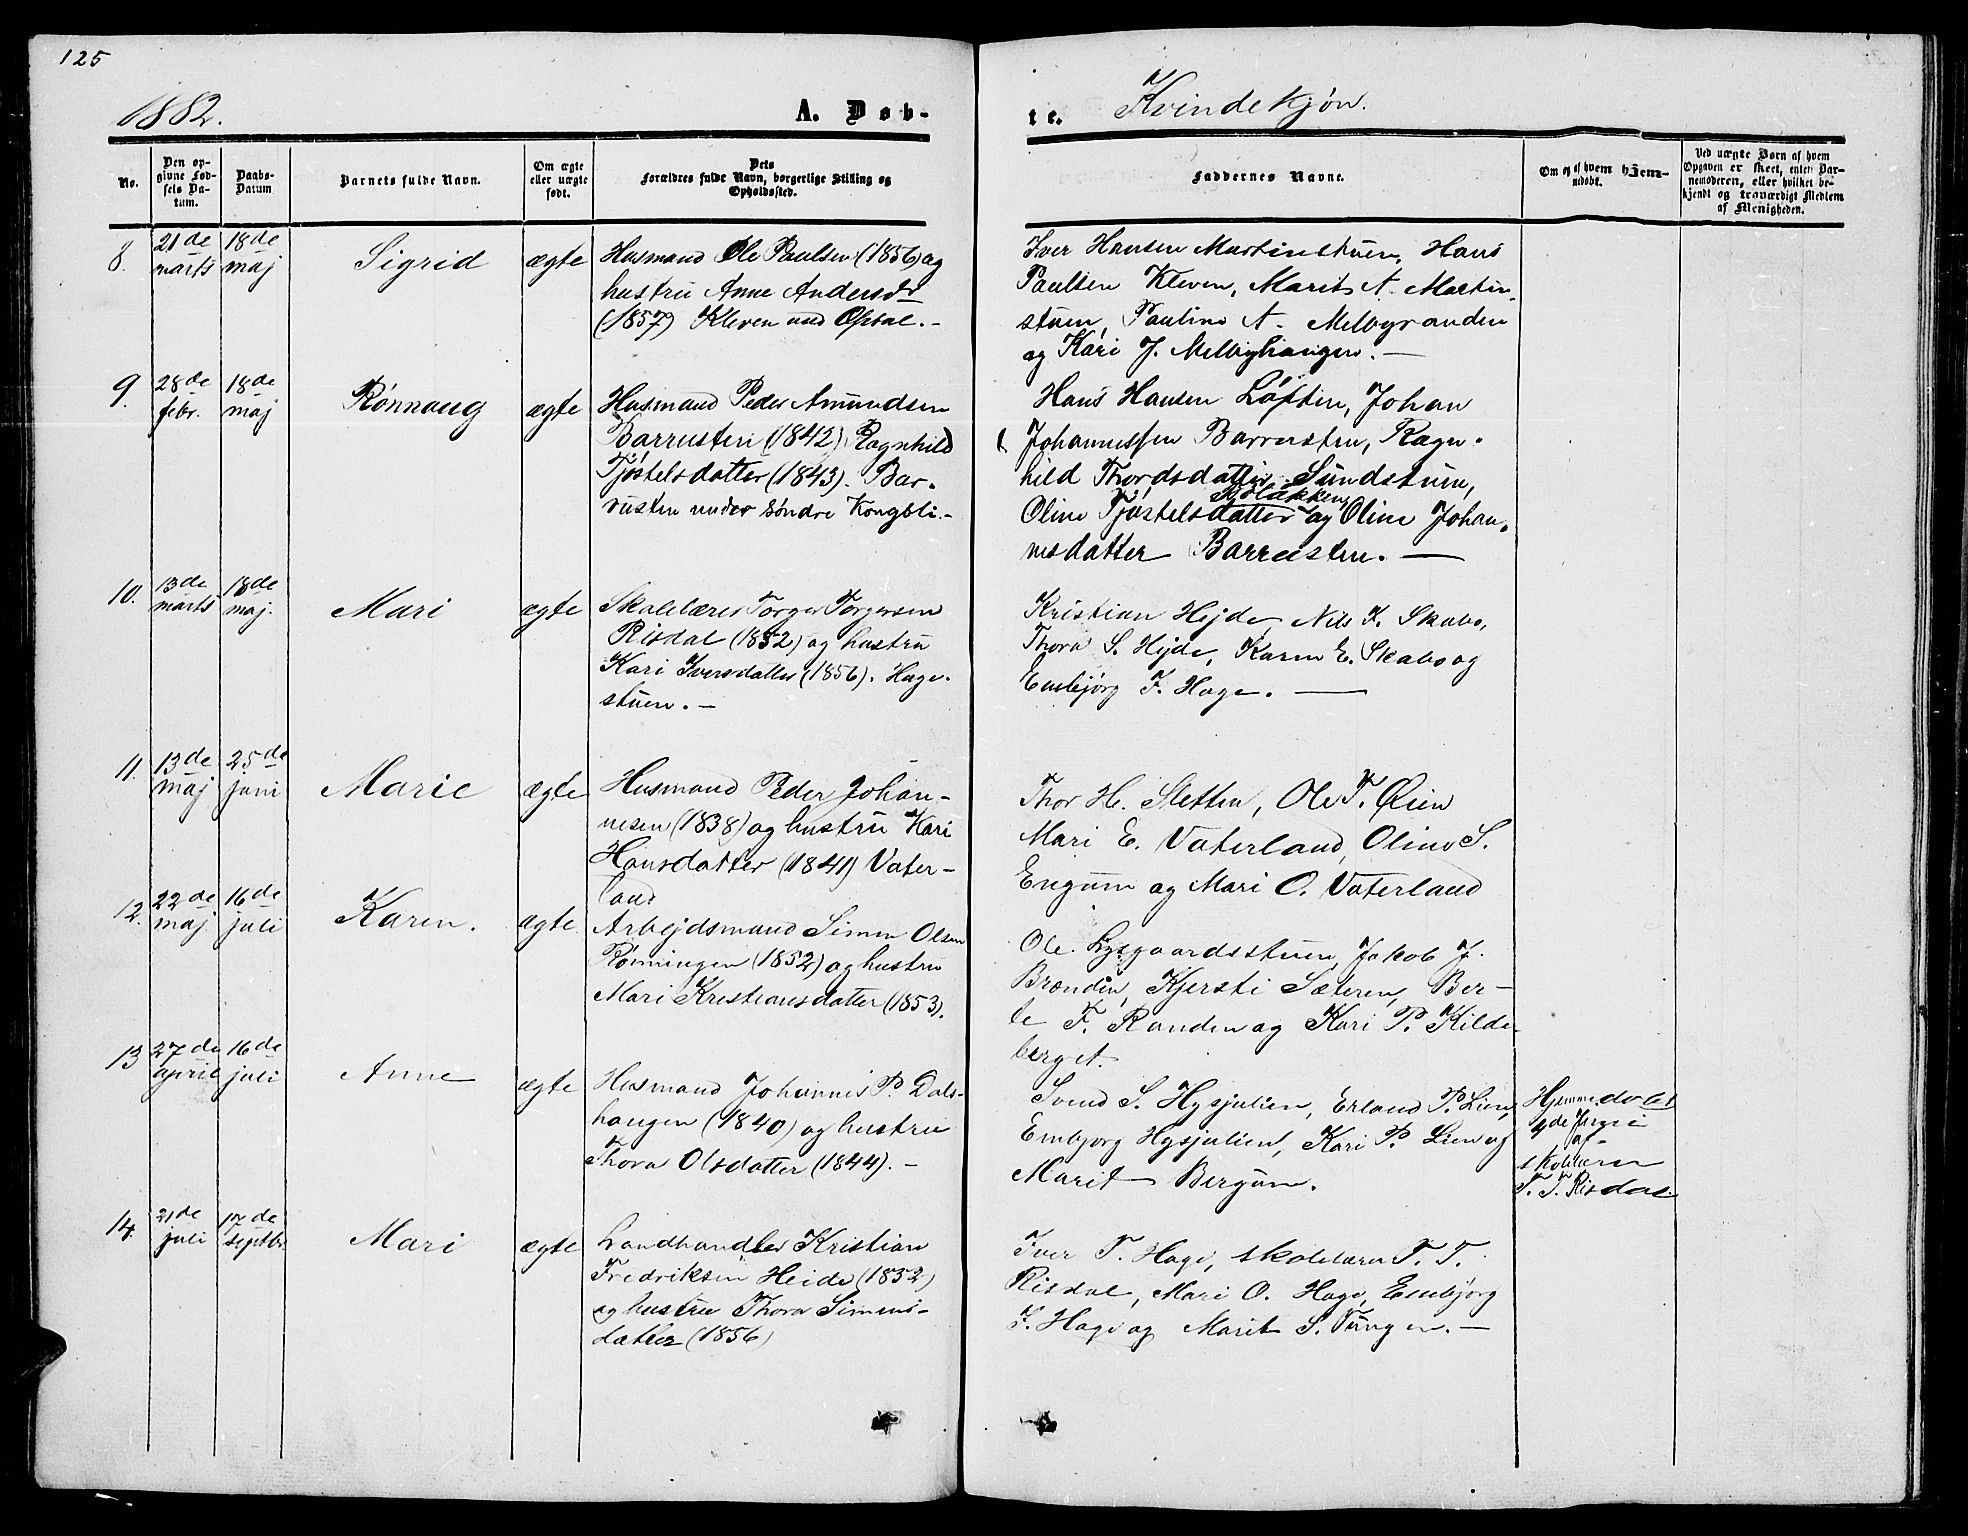 125
1882.
A. Døb-
te. Kvindekjøn.
No.
Den op-
givne Fød-
sels Da-
tum.
Daabs-
Datum
Barnets fulde Navn.
Om ægte
eller uægte
født.
Dets
Forældres fulde Navn, borgerlige Stilling og
Opholdssted.
Faddernes Navne.
Om og af hvem hjem-
medøbt.
Ved uægte Børn af hvem
Opgaven er skeet, enten Bar-
nemoderen, eller hvilket be-
kjendt og troværdigt Medlem
af Menigheden.
8. 21de marts 18de maj Sigrid ægte
Husmand Ole Paulsen (1856) og
hustru Anne Andersdr
(1857) Kleven und Opdal.-
Iver Hansen Martinstuen, Hans
Paulsen Kleven, Marit A. Martin-
stuen, Pauline A. Melbyranden
og Kari J. Melbyhaugen. —
9. 28de febr. 18de maj Rønnaug ægte
Husmand Peder Amundsen
Barrusten (1842) Ragnhild
Tjøstelsdatter (1843). Bar-
rusten under søndre Kongsli.-
Hans Hansen Løften, Johan
Johannessen Barrusten, Ragn-
hild Thordsdatter Sundstuen,
Oline Tjøstelsdatter og Oline Johan-
nesdatter Barrusten. —
10. 13de marts 18de maj. Mari ægte
Skolelærer Torger Torgersen
Risdal (1852) og hustru
Kari Iversdatter (1856). Hage-
stuen. -
Kristian Hejde, Nils F. Skabo,
Thora S. Hejde, Karen E. Skabo og
Embjørg F. Hage. —
11. 13de maj 25de juni Marie ægte
Husmand Peder Johan-
nesen (1838) og hustru Kari
Hansdatter (1841) Vater-
land
Thor H. Sletten, Ole T. Øien
Mari E. Vaterland, Oline S.
Engum og Mari O. Vaterland
12. 22de maj 16de juli Karen. ægte.
Arbejdsmand Simen Olsen
Rønningen (1852) og hustru
Mari Kristiansdatter (1853).
Ole Lysgaardsstuen, Jakob J.
Brænden, Kjersti Sæteren, Ber-
te F. Randen og Kari P. Kilde-
berget.
13 27de april 16de juli Anne ægte
Husmand Johannes P. Dals-
haugen (1840) og hustru
Thora Olsdatter (1844). -
Svend S. Hysjulien, Erland P. Lien,
Embjørg Hysjulien, Kari P. Lien og
Marit Bergum.
Hjemmedøbt
4de Juni
af
skolelærer
T. T. Risdal.
14. 21de juli 17de septbr Mari ægte
Landhandler Kristian
Fredriksen Heide (1852)
og hustru Thora Simens-
datter (1856)
Iver T. Hage, skolelærer T. T.
Risdal, Mari O. Hage, Embjørg
F. Hage og Marit S. Tungen. —